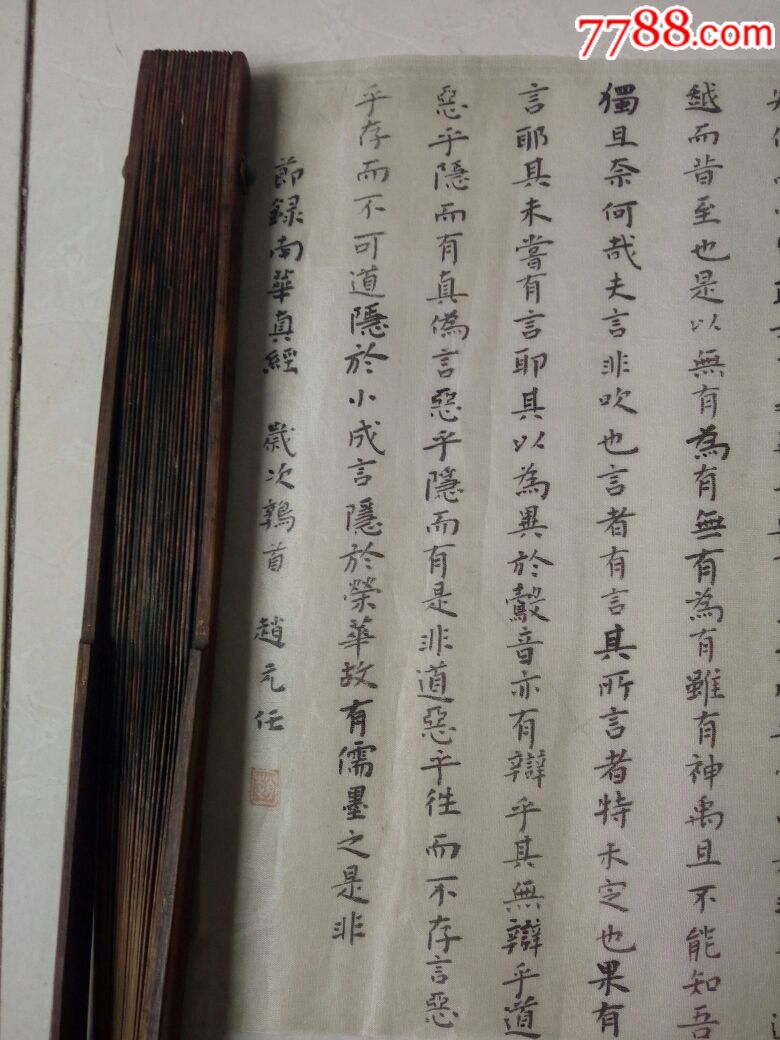 7788.com
越而昔至也是以無有為有無有為有雖有神禹且不能知吾
獨且奈何哉夫言非吹也言者有言其所言者特未定也果有
言耶其未嘗有言耶其以為異於鷇音亦有辯乎其無辯乎道
惡乎隱而有真偽言惡乎隱而有是非道惡乎往而不存言惡
乎存而不可道隱於小成言隱於榮華故有儒墨之是非
節錄南華真經 歲次鶉首 趙元任